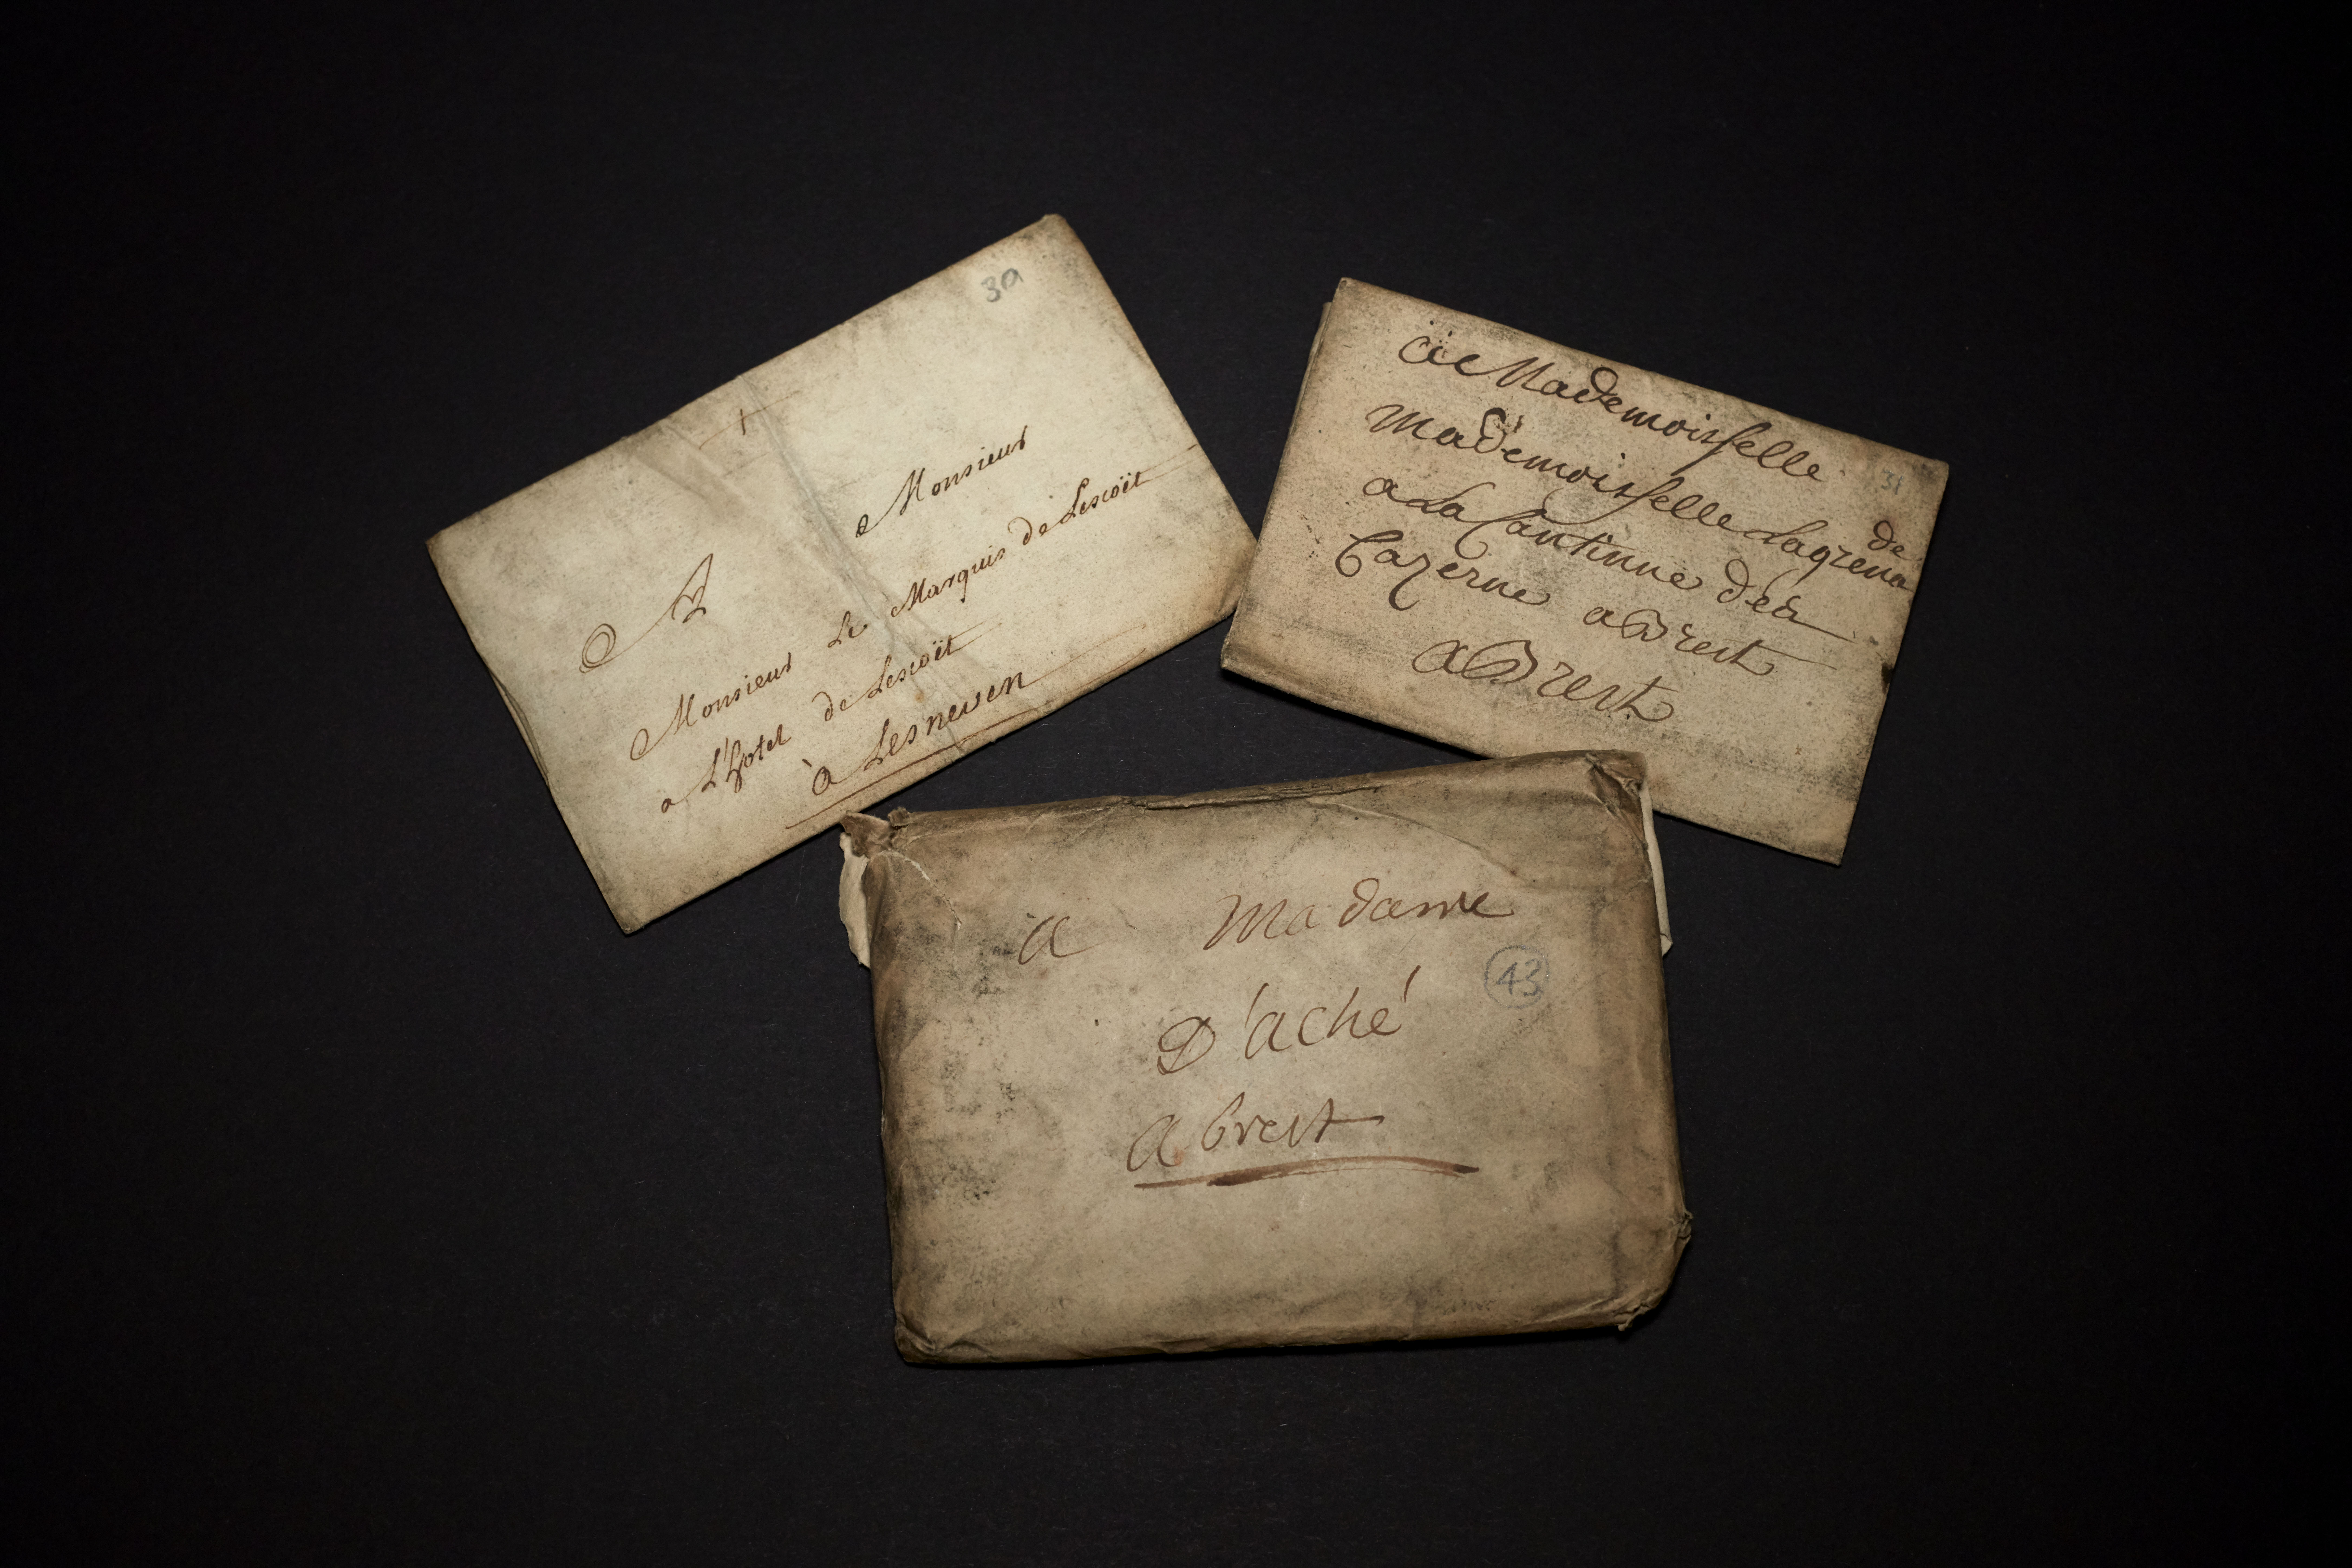 39
A
Monsieur
Monsieur Le Marquis de Lescoët
a L'hotel de Lescoët
à Lesneven
31
Mademoisselle
Mademoisselle Lagrena
de
a La Cantinne des
Cazerne a Brest
a Brest
a Madame
43
D'aché
a brest